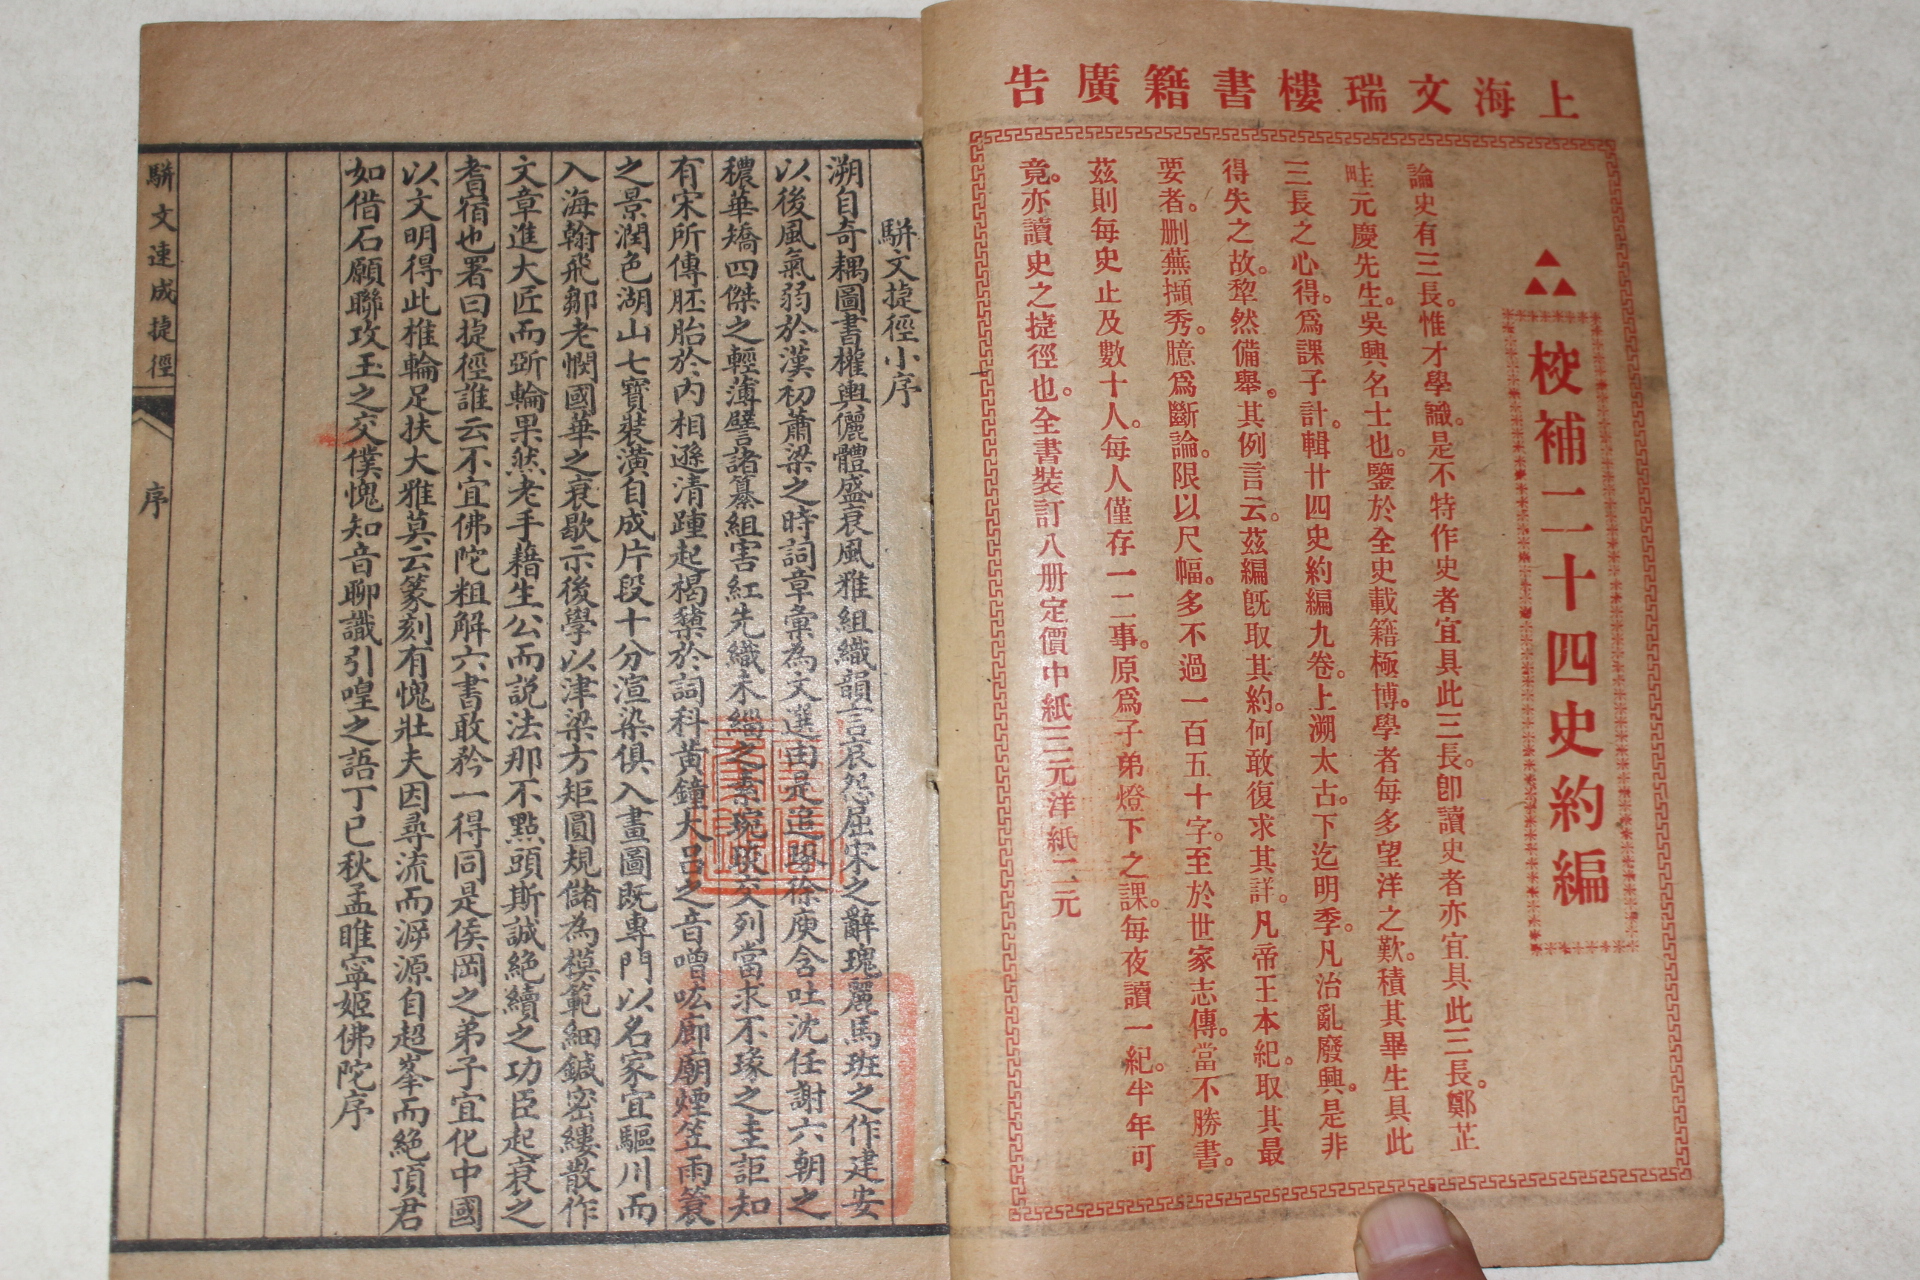 上海文瑞樓書籍廣告
校補二十四史約編
論史有三長。惟才學識。是不特作史者宜具此三長。卽讀史者亦宜具此三長。鄭芷
畦元慶先生。吳興名士也。鑒於全史載籍極博。學者每多望洋之歎。積其畢生具此
三長之心得。爲課子計。輯廿四史約編九卷。上溯太古。下迄明季。凡治亂廢興。是非
得失之故。犂然備舉。其例言云。茲編旣取其約。何敢復求其詳。凡帝王本紀。取其最
要者。删蕪擷秀。臆爲斷論。限以尺幅。多不過一百五十字。至於世家志傳。當不勝書。
茲則每史止及數十人。每人僅存一二事。原爲子弟燈下之課。每夜讀一紀。半年可
竟。亦讀史之捷徑也。全書裝訂八册定價中紙三元洋紙二元
駢文捷徑小序
溯自奇耦圖書權輿儷體盛衰風雅組織韻言哀怨屈宋之辭瑰麗馬班之作建安
以後風氣弱於漢初蕭梁之時詞章彙為文選由是追踪徐庾含吐沈任謝六朝之
穠華矯四傑之輕薄譬諸纂組害紅先織未緇之素琬琰交列當求不瑑之圭詎知
有宋所傳胚胎於內相遜清踵起楬櫫於詞科黃鐘大呂之音噌吰廊廟煙笠雨簑
之景潤色湖山七寶裝潢自成片段十分渲染俱入畫圖既專門以名家宜驅川而
入海翰飛鄒老憫國華之衰歇示後學以津梁方矩圓規儲為模範細鍼密縷散作
文章進大匠而斵輪果然老手藉生公而説法那不點頭斯誠絶續之功臣起衰之
耆宿也署曰捷徑誰云不宜佛陀粗解六書敢矜一得同是侯岡之弟子宜化中國
以文明得此椎輪足扶大雅莫云篆刻有愧壯夫因尋流而泝源自超峯而絶頂君
如借石願聯攻玉之交僕愧知音聊識引喤之語丁巳秋孟睢寧姬佛陀序
駢文速成捷徑
序
一